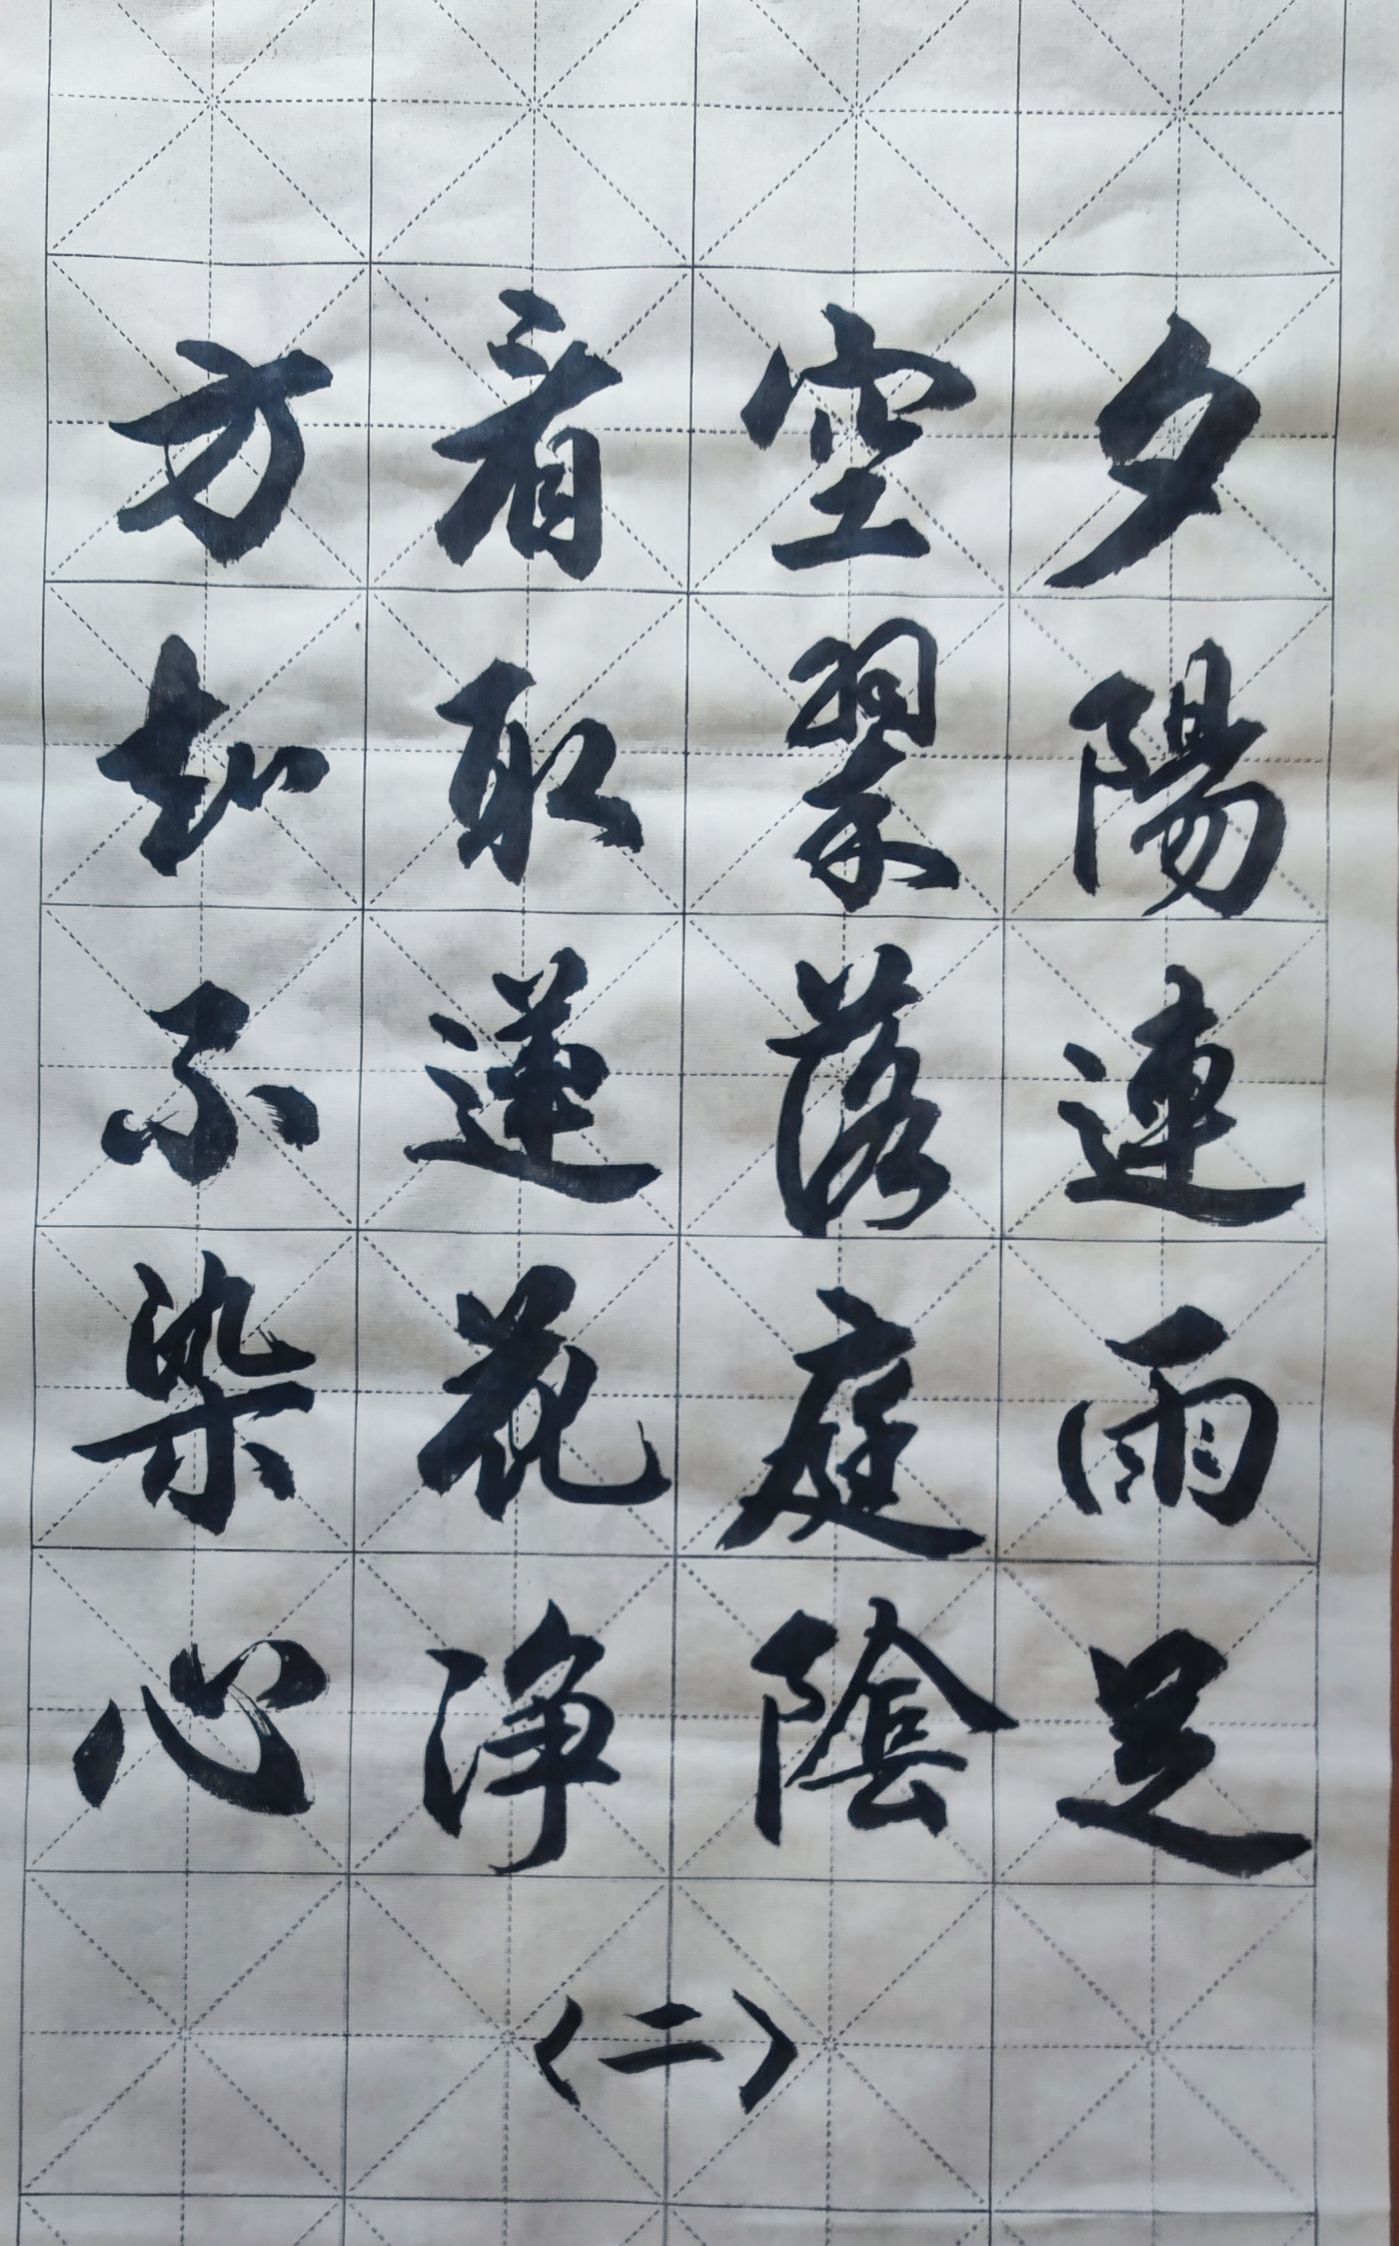 夕陽連雨足
空翠落庭陰
看取蓮花净
方知不染心
（二）